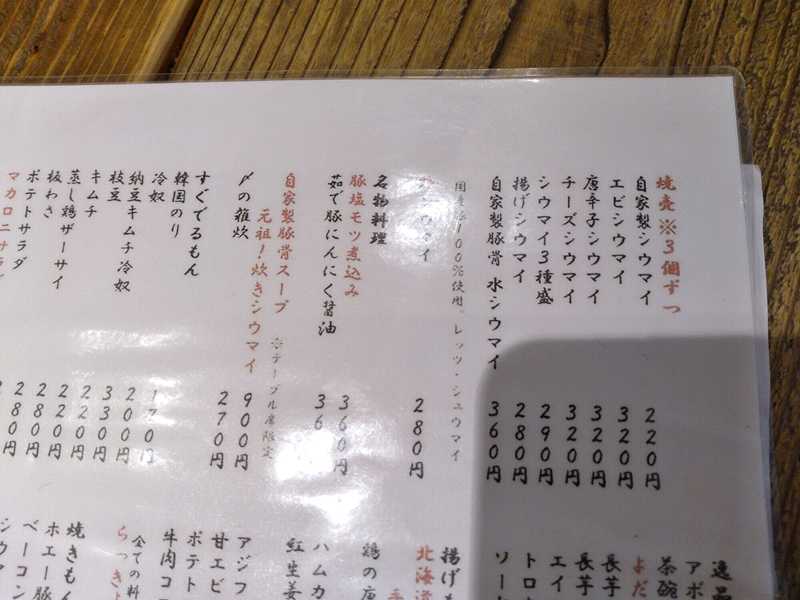 焼売※3個ずつ
自家製シウマイ 220円
エビシウマイ 320円
唐辛子シウマイ 320円
チーズシウマイ 320円
シウマイ3種盛 290円
揚げシウマイ 280円
自家製豚骨 水シウマイ 360円
100%使用。レッツ・シュウマイ
シウマイ 280円
名物料理
豚塩モツ煮込み 360円
茹で豚にんにく醤油 36
自家製豚骨スープ ※テーブル席限定
元祖!炊きシウマイ 900円
〆の雑炊 270円
すぐでるもん
韓国のり
冷奴 200円
納豆キムチ冷奴
枝豆
キムチ
蒸し鶏ザーサイ
板わさ
ポテトサラダ
マカロニサラ
逸品
アボ
茶碗
よだ
長芋
長芋
エイ
トロ
ソー
揚げも
北海道
鶏の唐
ハムカ
紅生姜
アジフ
甘エビ
ポテト
牛肉コ
全ての料
らっきょ
焼きもん
ホエー豚
ベーコン
シウマ